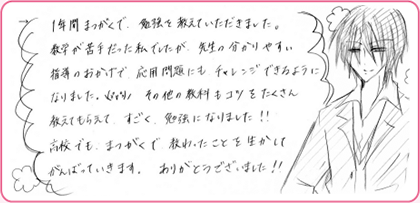 1年間まつがくで、勉強を教えていただきました。
数学が苦手だった私でしたが、先生の分かりやすい
指導のおかげで、応用問題にもチャレンジできるように
なりました。 その他の教科もコツをたくさん
教えてもらえて、すごく、勉強になりました!!
高校でも、まつがくで、教わったことを生かして
がんばっていきます。 ありがとうございました!!